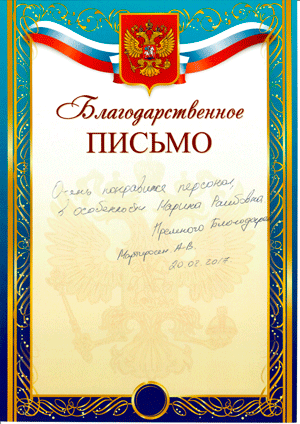 Благодарственное
ПИСЬМО
Очень понравился персонал,
в особенности Марина
Премного Благодарен
Мартиросян А.В.
20.08.2017